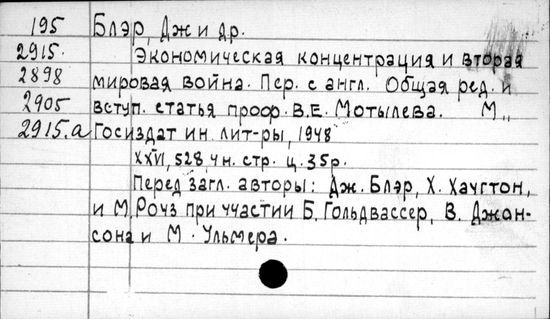 195 Блэр, Дж и др.
2915. Экономическая концентрация и вторая
2898 мировая война. Пер. с англ. Общая ред. и
2905 вступ. статья проф. В.Е. Мотылева. М.,
2915.а Госиздат ин. лит-ры, 1948
XXVI, 528, 4 н. стр. ц. 35р.
Перед загл. авторы: Дж. Блэр, Х. Хачгтон,
и М. Рочз при ччастии Б. Гольдвассер, В. Джон-
сона и М. Ульмера.